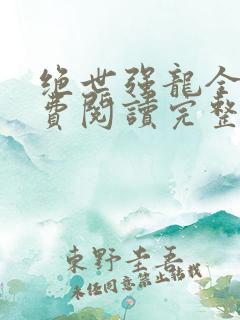 绝世强龍全
費閱讀完整
東野圭吾
未经同意禁止转载